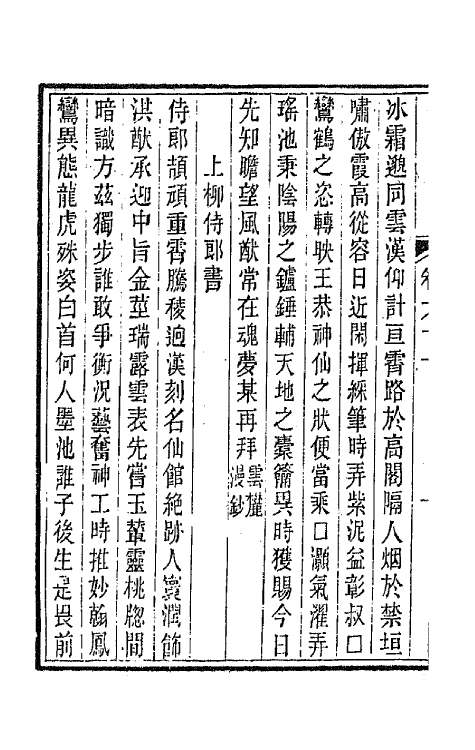 冰霜邈同雲漢仰計亘霄路於高閣隔人烟於禁垣
嘯傲霞高從容日近閑揮綵筆時弄紫泥益彰叔□
鸞鶴之恣轉映王恭神仙之狀便當乘□灝氣濯弄
瑤池秉陰陽之鑪錘輔天地之橐籥異時獲賜今日
先知瞻望風猷常在魂夢某再拜雲麓漫鈔
上柳侍郎書
侍郎頡頏重霄騰稜逈漢刻名仙館絶跡人寰潤飾
洪猷承迎中旨金莖瑞露雲表先嘗玉輦靈桃牕間
暗識方茲獨步誰敢爭衡況藝奮神工時推妙翰鳳
鸞異態龍虎殊姿白首何人墨池誰子後生是畏前